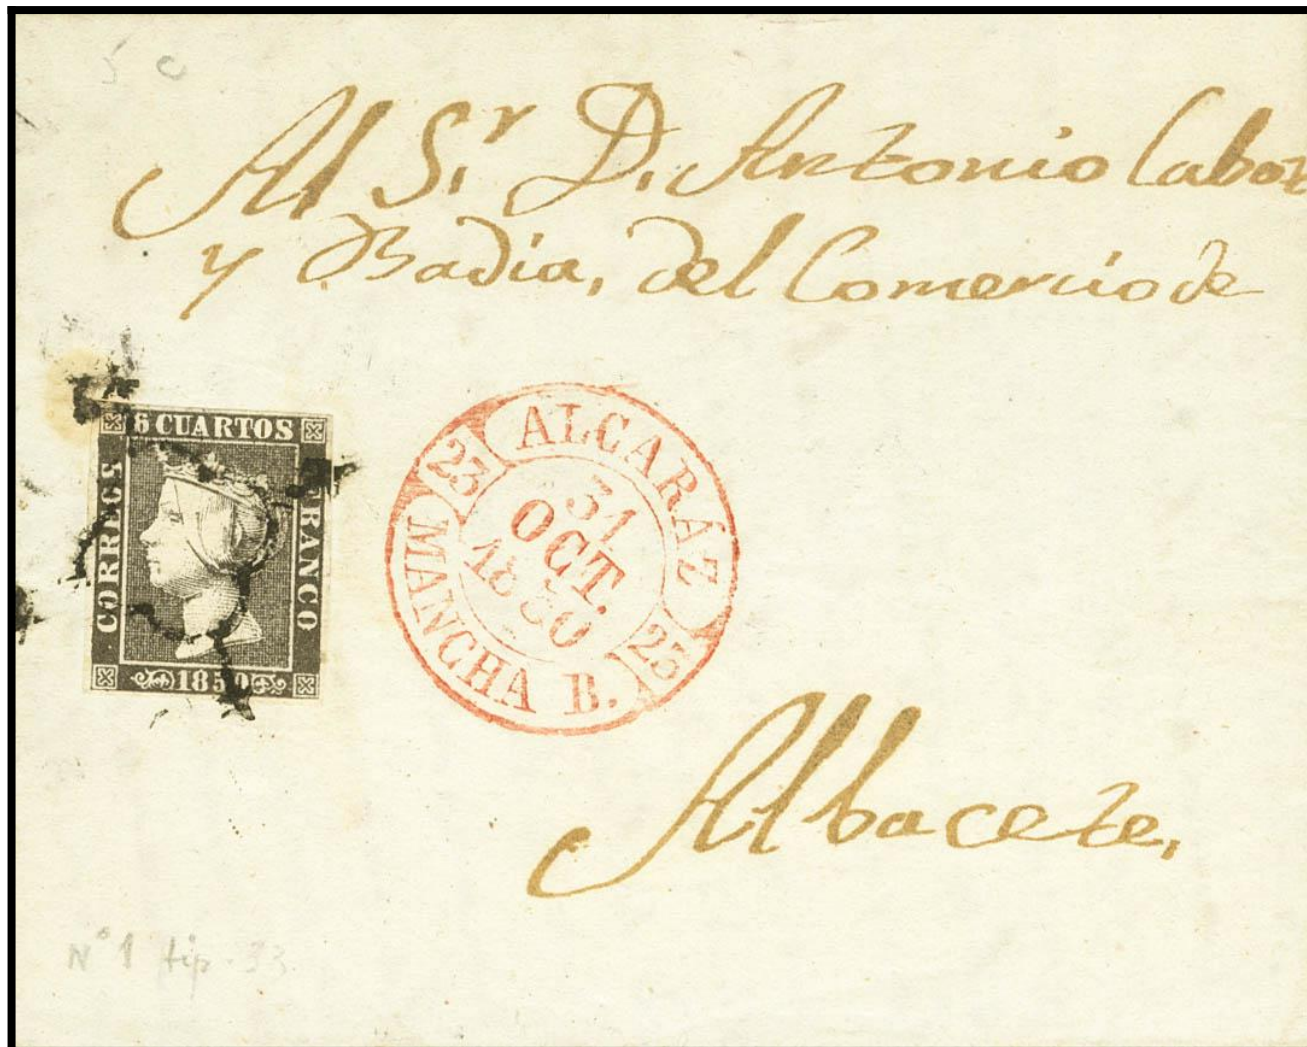 5 c
Al S.r D. Antonio Cabot
y Badia, del Comercio de
6 CUARTOS
CORREOS
FRANCO
1850
ALCARÁZ
23
31
OCT.
1850
23
MANCHA B.
Albacete.
N° 1 tip. 33